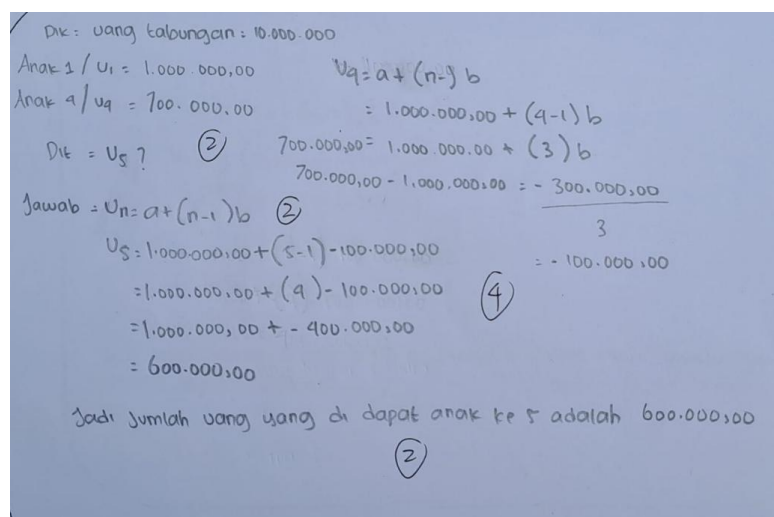 Dik: uang tabungan: 10.000.000
Anak 1 / U1 = 1.000.000,00
Anak 4 / U4 = 700.000,00
Dit = U5 ? ②
U4 = a + (n-1) b
= 1.000.000,00 + (4-1) b
700.000,00 = 1.000.000.00 + (3) b
700.000,00 - 1.000.000,00 = - 300.000,00
3
= - 100.000,00
Jawab = Un = a + (n-1) b ②
U5 = 1.000.000,00 + (5-1) - 100.000,00
= 1.000.000,00 + (4) - 100.000,00 ④
= 1.000.000,00 + - 400.000,00
= 600.000,00
Jadi Jumlah uang yang di dapat anak ke 5 adalah 600.000,00
②